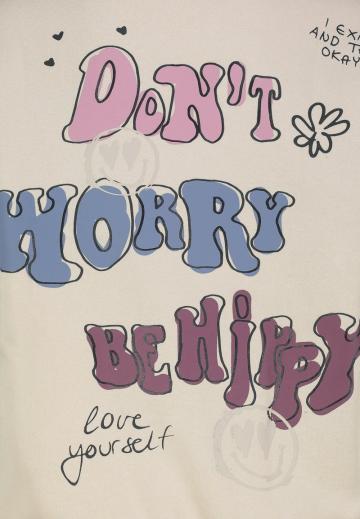 I EXI
AND T
OKAY
DON'T
WORRY
BE HiPPY
love
yourself